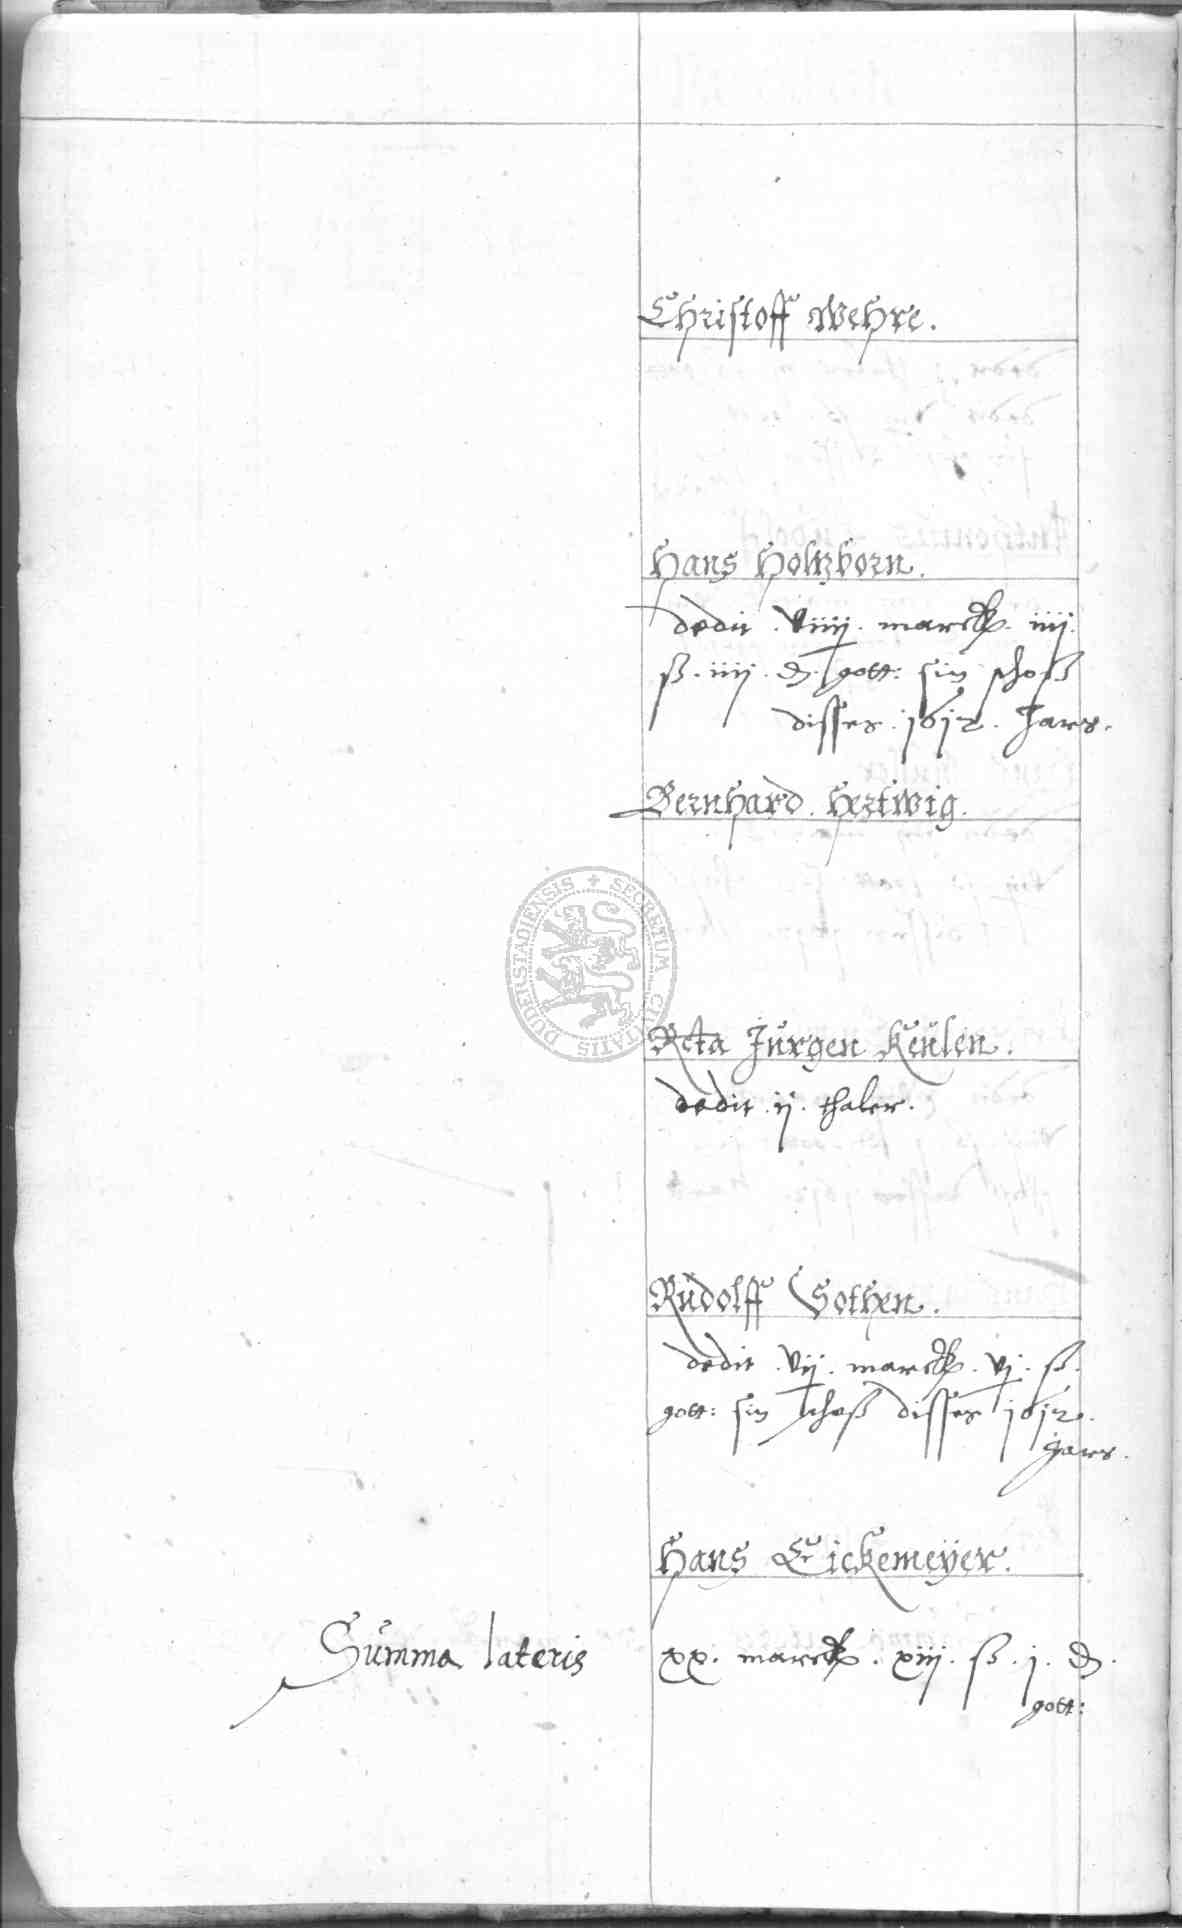 Christoff Wehre.
Hans Holtzborn.
dedit . viiij . marck . iiij .
ß . iiij . d . gott: sin schoß
disses . 1612 . Jars .
Bernhard . Hertwig .
SECRETUM CIVITATIS DUDERSTADIENSIS
Rcta Jürgen Keülen .
dedit . ij . thaler .
Rüdolff Gothen .
dedit . vij . marck . vj . ß .
gott: sin schoß disses 1612 .
Jars .
Hans Eickemeÿer .
Sümma lateris xx . marck . xiij . ß . j . d .
gott: